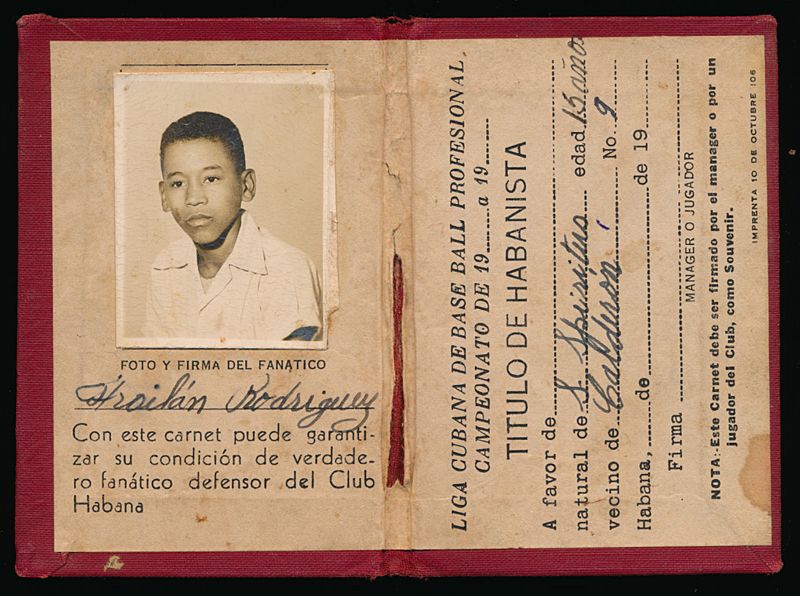 FOTO Y FIRMA DEL FANATICO
Froilán Rodriguez
Con este carnet puede garanti-
zar su condición de verdade-
ro fanático defensor del Club
Habana
LIGA CUBANA DE BASE BALL PROFESIONAL.
CAMPEONATO DE 19...... a 19......
TITULO DE HABANISTA
A favor de
natural de S. Spiritus edad 15 años
vecino de Calderon No. 9
Habana, ...... de ...... de 19 ......
Firma
MANAGER O JUGADOR
NOTA:-Este Carnet debe ser firmado por el manager o por un
jugador del Club, como Souvenir.
IMPRENTA 10 DE OCTUBRE 106